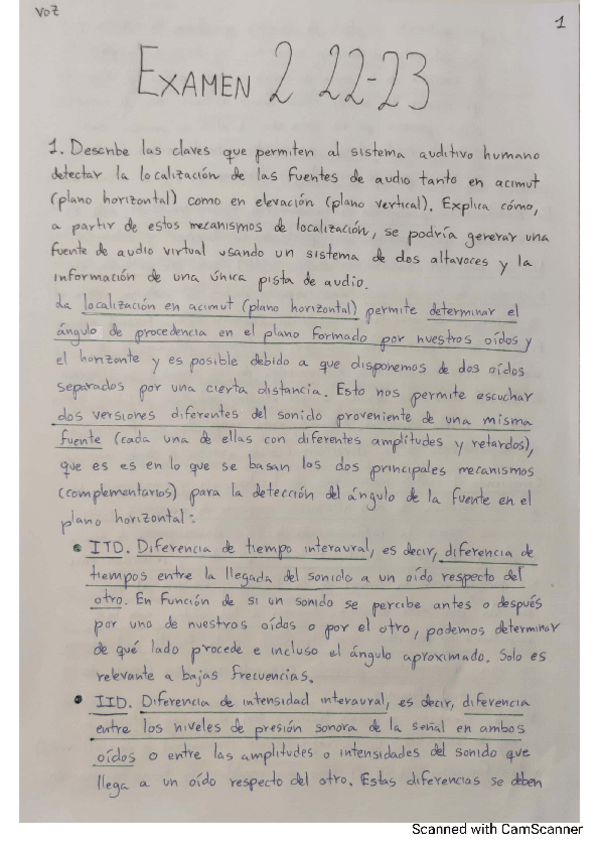 VOZ
1
EXAMEN 2 22-23
1. Describe las claves que permiten al sistema auditivo humano
detectar la localización de las fuentes de audio tanto en acimut
(plano horizontal) como en elevación (plano vertical). Explica cómo,
a partir de estos mecanismos de localización, se podría generar una
fuente de audio virtual usando un sistema de dos altavoces y la
información de una única pista de audio.
La localización en acimut (plano horizontal) permite determinar el
ángulo de procedencia en el plano formado por nuestros oídos y
el horizonte y es posible debido a que disponemos de dos oídos
separados por una cierta distancia. Esto nos permite escuchar
dos versiones diferentes del sonido proveniente de una misma
fuente (cada una de ellas con diferentes amplitudes y retardos),
que es es en lo que se basan los dos principales mecanismos
(complementarios) para la detección del ángulo de la fuente en el
plano horizontal:
• ITD. Diferencia de tiempo interaural, es decir, diferencia de
tiempos entre la llegada del sonido a un oído respecto del
otro. En función de si un sonido se percibe antes o después
por uno de nuestros oídos o por el otro, podemos determinar
de qué lado procede e incluso el ángulo aproximado. Solo es
relevante a bajas frecuencias.
• IID. Diferencia de intensidad interaural, es decir, diferencia
entre los niveles de presión sonora de la señal en ambos
oídos o entre las amplitudes o intensidades del sonido que
llega a un oído respecto del otro. Estas diferencias se deben
Scanned with CamScanner